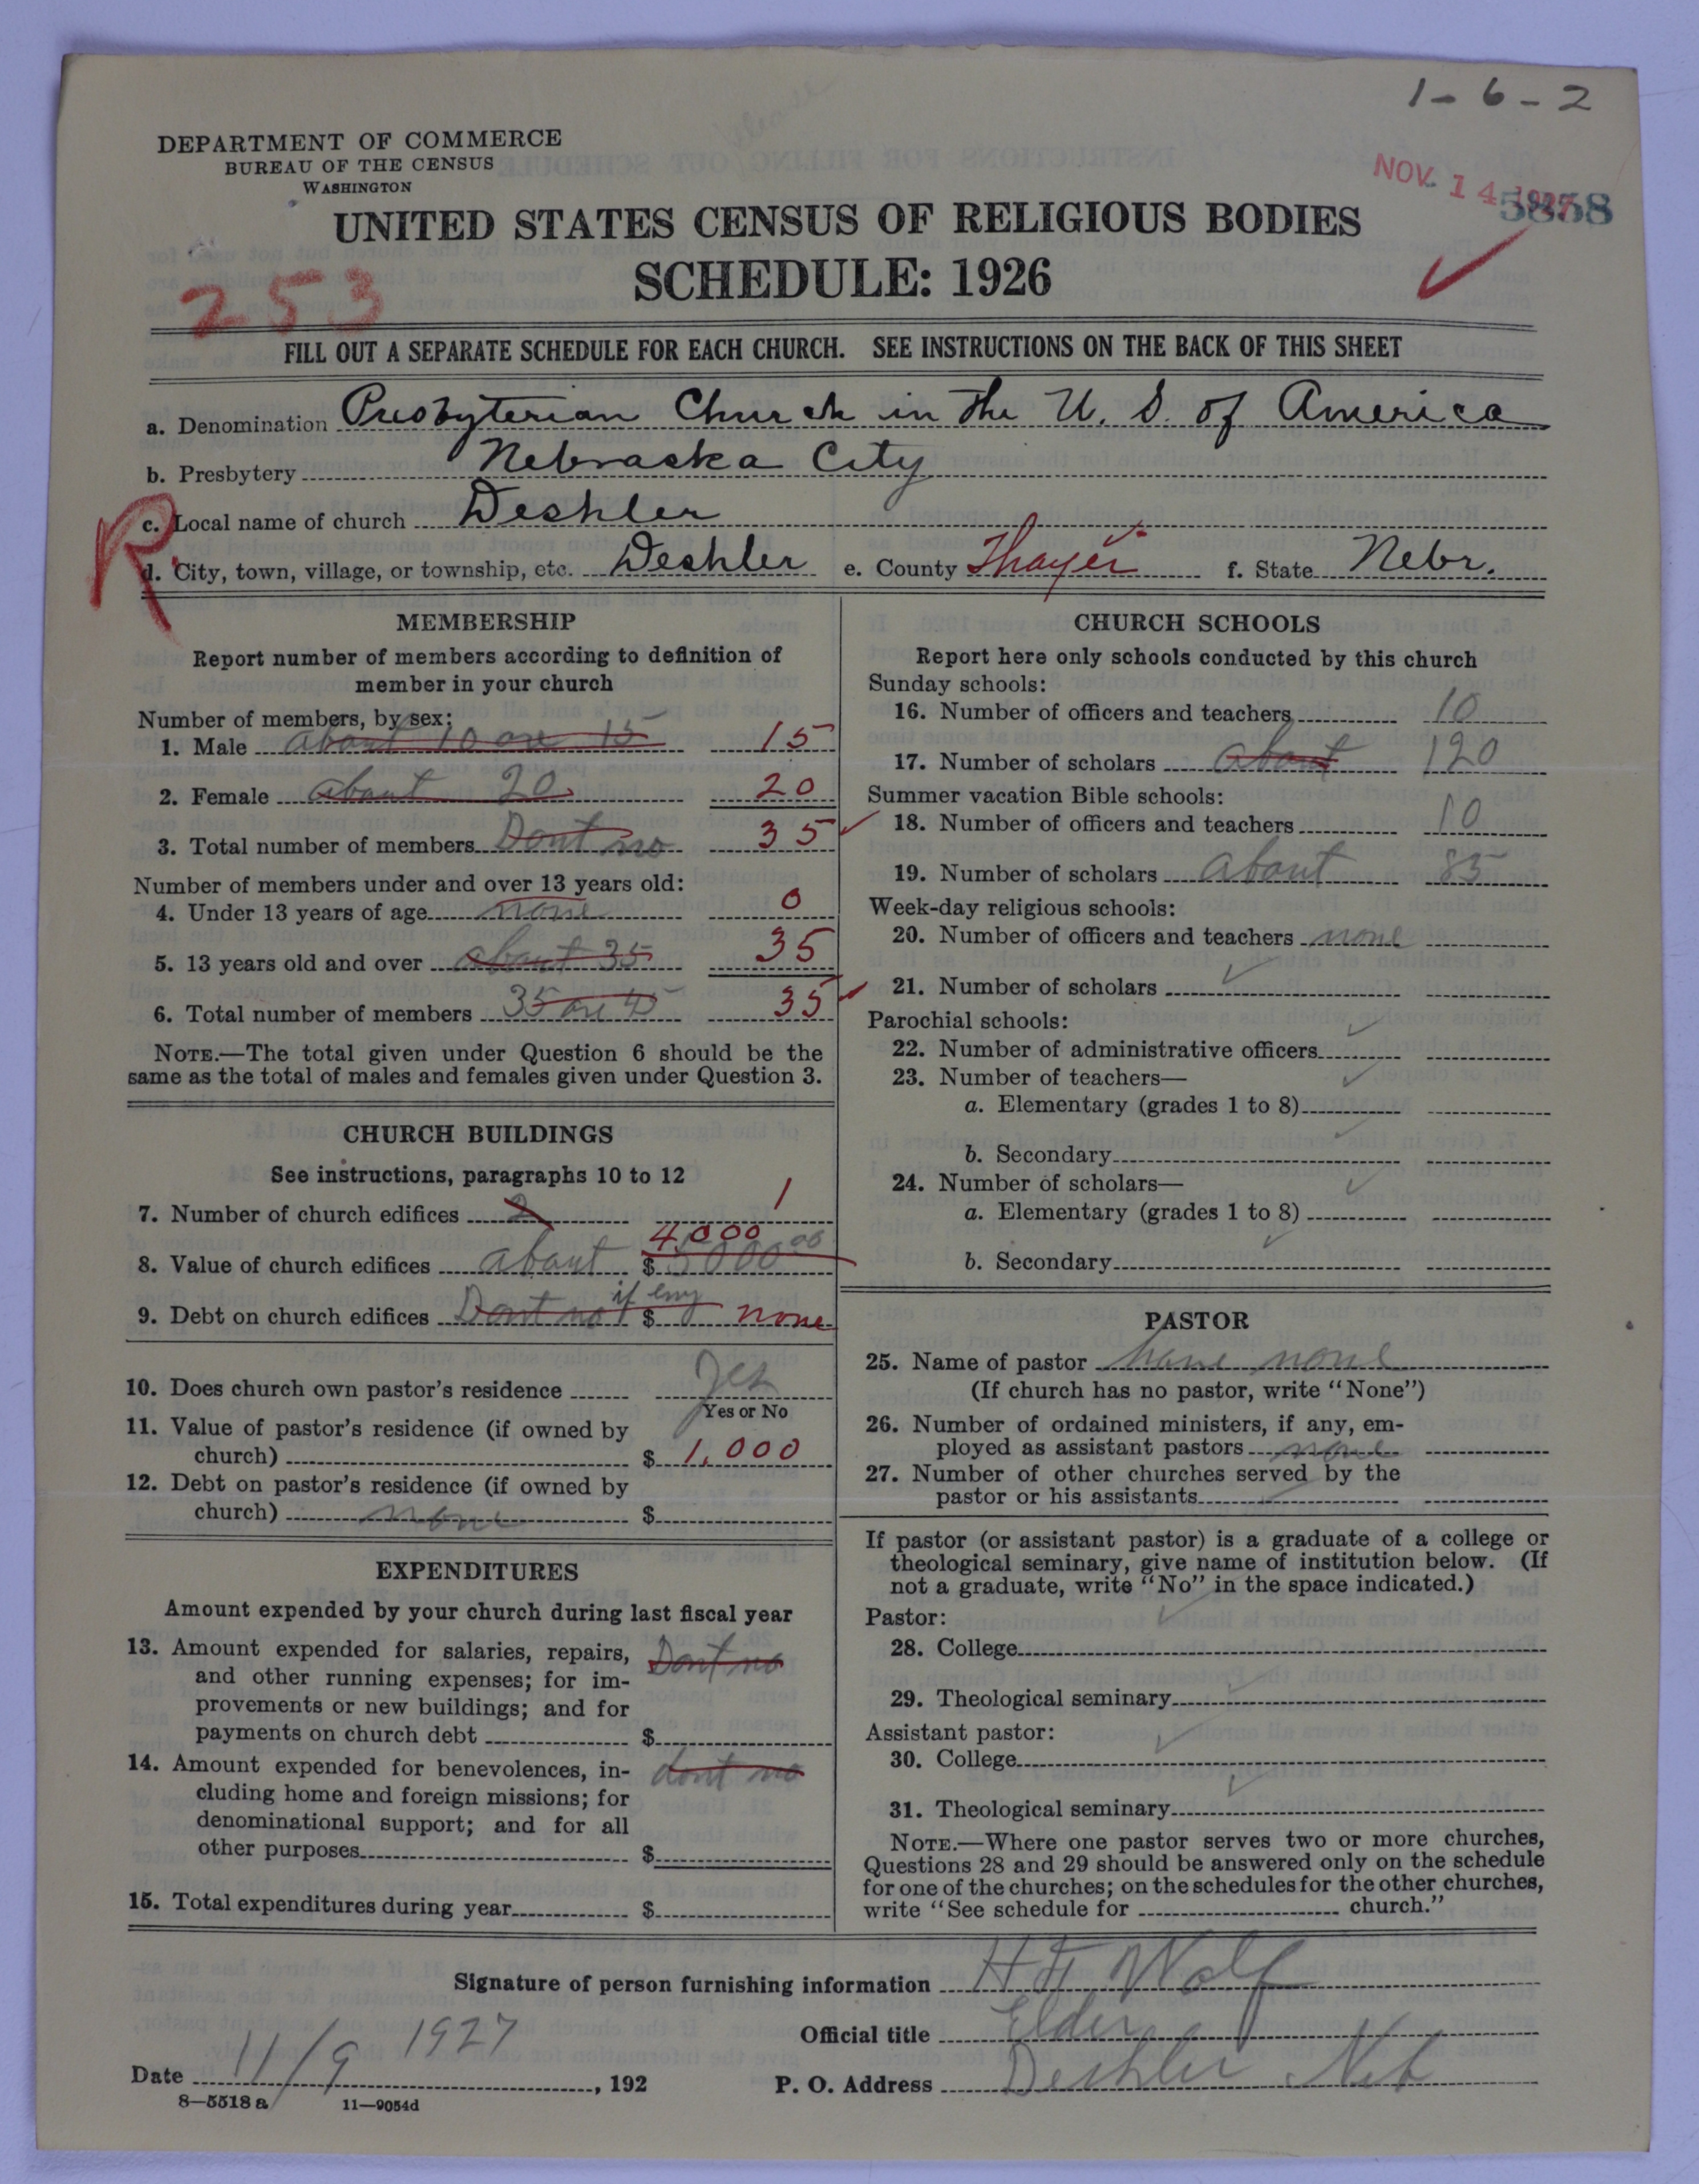 1-6-2
DEPARTMENT OF COMMERCE
BUREAU OF THE CENSUS
WASHINGTON
NOV. 14 1927
5858
UNITED STATES CENSUS OF RELIGIOUS BODIES
SCHEDULE: 1926
253
FILL OUT A SEPARATE SCHEDULE FOR EACH CHURCH. SEE INSTRUCTIONS ON THE BACK OF THIS SHEET
a. Denomination Presbyterian Church in the U. S. of America
b. Presbytery Nebraska City
R.
c. Local name of church Deshler
d. City, town, village, or township, etc. Deshler e. County Thayer f. State Nebr.
MEMBERSHIP
Report number of members according to definition of
member in your church
Number of members, by sex:
1. Male about 10 ore 15 15
2. Female about 20 20
3. Total number of members Dont no 35
Number of members under and over 13 years old:
4. Under 13 years of age none 0
5. 13 years old and over about 35 35
6. Total number of members 35 ore 45 35
NOTE.—The total given under Question 6 should be the
same as the total of males and females given under Question 3.
CHURCH BUILDINGS
See instructions, paragraphs 10 to 12
7. Number of church edifices 2 1
4,000
8. Value of church edifices about $ 5000.00
9. Debt on church edifices Dont no if eny $ none
10. Does church own pastor's residence Yes
Yes or No
11. Value of pastor's residence (if owned by
church) $ 1,000
12. Debt on pastor's residence (if owned by
church) none $
EXPENDITURES
Amount expended by your church during last fiscal year
13. Amount expended for salaries, repairs, Dont no
and other running expenses; for im-
provements or new buildings; and for
payments on church debt $
14. Amount expended for benevolences, in- dont no
cluding home and foreign missions; for
denominational support; and for all
other purposes $
15. Total expenditures during year $
CHURCH SCHOOLS
Report here only schools conducted by this church
Sunday schools:
16. Number of officers and teachers 10
17. Number of scholars about 120
Summer vacation Bible schools:
18. Number of officers and teachers 10
19. Number of scholars about 85
Week-day religious schools:
20. Number of officers and teachers none
21. Number of scholars
Parochial schools:
22. Number of administrative officers
23. Number of teachers—
a. Elementary (grades 1 to 8)
b. Secondary
24. Number of scholars—
a. Elementary (grades 1 to 8)
b. Secondary
PASTOR
25. Name of pastor have none
(If church has no pastor, write "None")
26. Number of ordained ministers, if any, em-
ployed as assistant pastors none
27. Number of other churches served by the
pastor or his assistants
If pastor (or assistant pastor) is a graduate of a college or
theological seminary, give name of institution below. (If
not a graduate, write "No" in the space indicated.)
Pastor:
28. College
29. Theological seminary
Assistant pastor:
30. College
31. Theological seminary
NOTE.—Where one pastor serves two or more churches,
Questions 28 and 29 should be answered only on the schedule
for one of the churches; on the schedules for the other churches,
write "See schedule for church."
Signature of person furnishing information H H Wolf
Official title Elder
Date 11/9 1927, 192
P. O. Address Deshler Neb
8—5518 a 11—9054d